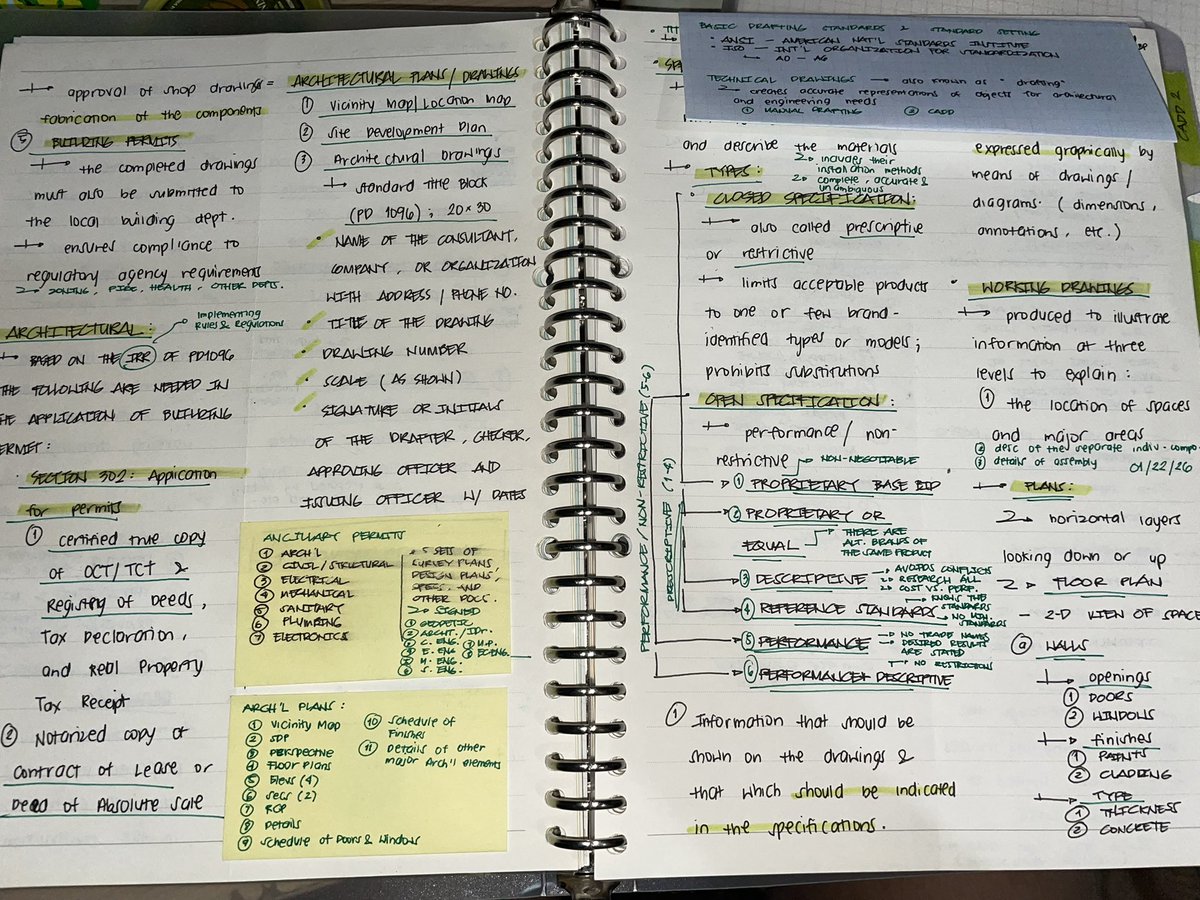 → approval of shop drawings =
fabrication of the components
⑤ BUILDING PERMITS
→ the completed drawings
must also be submitted to
the local building dept.
→ ensures compliance to
regulatory agency requirements
→ ZONING, FIRE, HEALTH, OTHER DEPTS.
Implementing
Rules & Regulations
ARCHITECTURAL:
→ BASED ON THE IRR OF PD1096
THE FOLLOWING ARE NEEDED IN
THE APPLICATION OF BUILDING
PERMIT:
• SECTION 302: Application
for permits
① certified true copy
of OCT/TCT &
Registry of Deeds,
Tax Declaration,
and Real Property
Tax Receipt
② Notarized copy of
Contract of Lease or
Deed of Absolute Sale
ARCHITECTURAL PLANS/DRAWINGS
① Vicinity Map/Location Map
② Site Development Plan
③ Architectural Drawings
→ standard title block
(PD 1096); 20×30
NAME OF THE CONSULTANT,
COMPANY, OR ORGANIZATION
WITH ADDRESS / PHONE NO.
TITLE OF THE DRAWING
DRAWING NUMBER
SCALE (AS SHOWN)
SIGNATURE OR INITIALS
OF THE DRAFTER, CHECKER,
APPROVING OFFICER AND
ISSUING OFFICER W/ DATES
ANCILLARY PERMITS
① ARCH'L
② CIVIL / STRUCTURAL
③ ELECTRICAL
④ MECHANICAL
⑤ SANITARY
⑥ PLUMBING
⑦ ELECTRONICS
• 5 SETS OF
SURVEY PLANS,
DESIGN PLANS,
SPECS. AND
OTHER DOCS.
→ SIGNED
① GEODETIC
② ARCHT. / IDr.
③ C. ENG.
④ E. ENG
⑤ M. ENG.
⑥ S. ENG.
⑦ M.P.
⑧ ECENG.
ARCH'L PLANS:
① Vicinity Map
② SDP
③ PERSPECTIVE
④ Floor Plans
⑤ Elevs (4)
⑥ Secs (2)
⑦ RCP
⑧ Details
⑨ Schedule of Doors & Windows
⑩ Schedule of
Finishes
⑪ Details of other
major Arch'l elements
BASIC DRAFTING STANDARDS & STANDARD SETTING
• ANSI – AMERICAN NAT'L STANDARDS INSTITUTE
• ISO – INT'L ORGANIZATION FOR STANDARDIZATION
→ A0 – A6
TECHNICAL DRAWINGS → also known as "drafting"
→ creates accurate representations of objects for architectural
and engineering needs
① MANUAL DRAFTING ② CADD
CADD 2
and describe the materials
→ includes their
installation methods
→ complete, accurate &
unambiguous
→ TYPES:
CLOSED SPECIFICATION:
→ also called prescriptive
or restrictive
→ limits acceptable products
to one or few brand-
identified types or models;
prohibits substitutions
OPEN SPECIFICATION:
→ performance / non-
restrictive → NON-NEGOTIABLE
→ ① PROPRIETARY BASE BID
② PROPRIETARY OR
EQUAL → THERE ARE
ALT. BRANDS OF
THE SAME PRODUCT
③ DESCRIPTIVE → AVOIDS CONFLICTS
→ RESEARCH ALL
→ COST VS. PERF.
④ REFERENCE STANDARDS → KNOWS THE
STANDARDS
→ NO MIN.
STANDARDS
⑤ PERFORMANCE → NO TRADE NAMES
→ DESIRED RESULTS
ARE STATED
⑥ PERFORMANCE + DESCRIPTIVE
→ NO RESTRICTIONS
PERFORMANCE / NON-RESTRICTIVE (5-6)
PRESCRIPTIVE (1-4)
① Information that should be
shown on the drawings &
that which should be indicated
in the specifications.
expressed graphically by
means of drawings /
diagrams. (dimensions,
annotations, etc.)
• WORKING DRAWINGS
→ produced to illustrate
information at three
levels to explain:
① the location of spaces
and major areas
② desc of the separate indiv. compo
③ details of assembly 01/22/26
→ PLANS:
→ horizontal layers
looking down or up
→ FLOOR PLAN
– 2-D VIEW OF SPACE
ⓐ WALLS
→ openings
① DOORS
② WINDOWS
→ finishes
① PAINTS
② CLADDING
→ TYPE
① THICKNESS
② CONCRETE